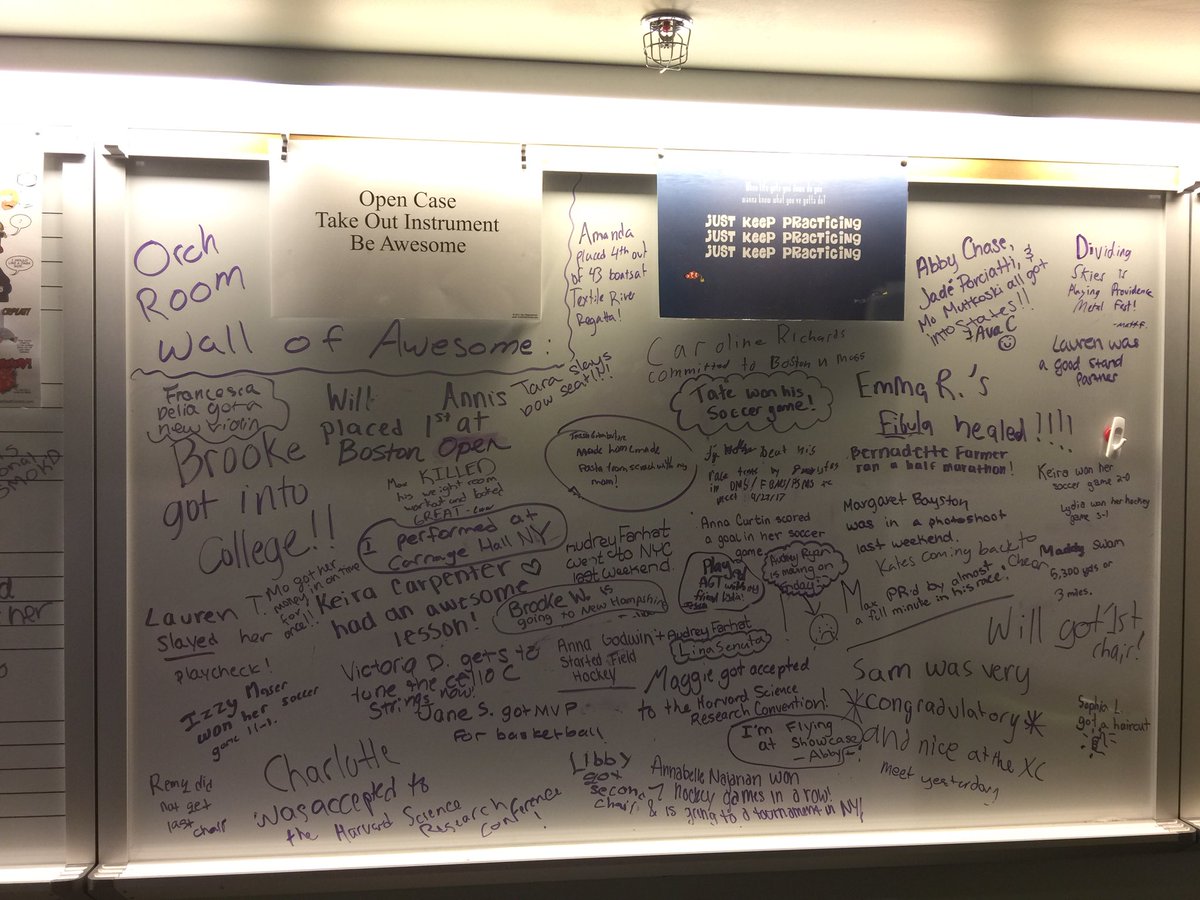 Open Case
Take Out Instrument
Be Awesome
wanna know what you've gotta do?
JUST KEEP PRACTICING
JUST KEEP PRACTICING
JUST KEEP PRACTICING
Orch
Room
Wall of Awesome:
Amanda
placed 4th out
of 43 boats at
Textile River
Regatta!
Abby Chase,
Jade Porciatti, &
Mo Mutkoski all got
into States!!
Ava C
Dividing
Skies is
Playing Providence
Metal Fest!
Lauren was
a good stand
partner
Caroline Richards
committed to Boston U Mass
Francesca
Delia got a
new violin
Will Annis
placed 1st at
Boston Open
Tara slays
bow seat!!!
Tate won his
Soccer game!
Emma R.'s
Fibula healed!!!!
Brooke
got into
College!!
Max KILLED
his weight room
workout and
GREAT
made homemade
Pasta from scratch with my
mom!
beat his
race
in
meet 9/27/17
Bernadette Farmer
ran a half marathon!
Keira won her
soccer game 2-0
Lydia won her hockey
game 3-1
I performed at
Carnage Hall NY
Audrey Farhat
went to NYC
last weekend.
Anna Curtin scored
a goal in her soccer
game
Margaret Bayston
was in a photoshoot
last weekend.
Kates coming back to
Cheer
Maddy swam
5,300 yds or
3 miles.
Mo got her
money in on time
for once!!
Keira Carpenter ♡
had an awesome
lesson!
Played
AGT with my
friend
Audrey Ryan
is moving on
Friday
Max PR'd by almost
a full minute in his race!
Lauren T.
Slayed her
playcheck!
Brooke W. is
going to New Hampshire
Will got 1st
chair!
Anna Godwin +
Started Field
Hockey
Audrey Farhat
Lina Senata
Victoria D. gets to
tune the cello C
Strings now!
Maggie got accepted
to the Harvard Science
Research Convention!
Sam was very
*congradulatory*
and nice at the XC
meet yesterday
Izzy Maser
won her soccer
game 11-1.
Jane S. got MVP
For basketball
I'm Flying
at Showcase
Sophia L.
got a haircut
Charlotte
was accepted to
the Harvard Science
Research
Conference!
Remy did
not get
last chair
Libby
got
second
chair!
Annabelle Najarian won
7 hockey games in a row!
& is going to a tournament in NY!